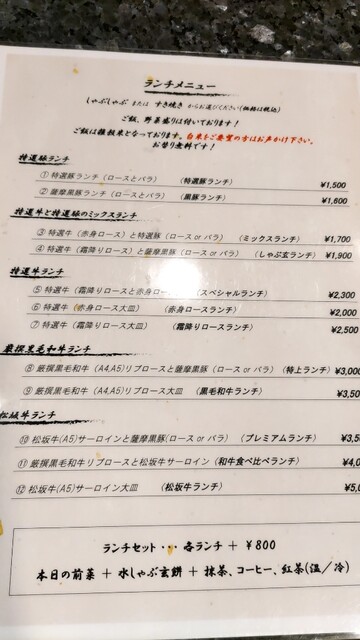 ランチメニュー
しゃぶしゃぶ または すき焼き からお選びください(価格は税込)
ご飯、野菜盛りは付いております!
ご飯は雑穀米となっております。白米をご要望の方はお声かけ下さい。
お替り無料です!
特選豚ランチ
① 特選豚ランチ(ロースとバラ) (特選豚ランチ) ¥1,500
② 薩摩黒豚ランチ(ロースとバラ) (黒豚ランチ) ¥1,600
特選牛と特選豚のミックスランチ
③ 特選牛(赤身ロース)と特選豚(ロース or バラ) (ミックスランチ) ¥1,700
④ 特選牛(霜降りロース)と薩摩黒豚(ロース or バラ) (しゃぶ玄ランチ) ¥1,900
特選牛ランチ
⑤ 特選牛(霜降りロースと赤身ロース) (スペシャルランチ) ¥2,300
⑥ 特選牛(赤身ロース大皿) (赤身ロースランチ) ¥2,000
⑦ 特選牛(霜降りロース大皿) (霜降りロースランチ) ¥2,500
厳撰黒毛和牛ランチ
⑧ 厳撰黒毛和牛(A4,A5)リブロースと薩摩黒豚(ロース or バラ)(特上ランチ) ¥3,000
⑨ 厳撰黒毛和牛(A4,A5)リブロース大皿 (黒毛和牛ランチ) ¥3,50
松坂牛ランチ
⑩ 松坂牛(A5)サーロインと薩摩黒豚(ロース or バラ) (プレミアムランチ) ¥3,5
⑪ 厳撰黒毛和牛リブロースと松坂牛サーロイン(和牛食べ比べランチ) ¥4,0
⑫ 松坂牛(A5)サーロイン大皿 (松坂牛ランチ) ¥5,0
ランチセット・・・ 各ランチ + ¥800
本日の前菜 + 水しゃぶ玄餅 + 抹茶、コーヒー、紅茶(温/冷)